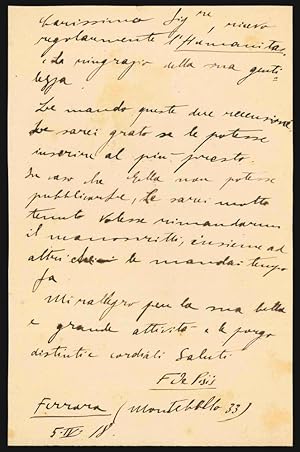 Carissimo Sig.re, ricevo
regolarmente l'Humanitas
e La ringrazio della sua genti=
lezza.
Le mando queste due recensioni
Le sarei grato se le potesse
inserire al più presto.
In caso che Ella non potesse
pubblicarle, Le sarei molto
tenuto volesse rimandarmi
il manoscritti, insieme ad
altri che le mandai tempo
fa.
Mi rallegro per la sua bella
e grande attività e le porgo
distinti e cordiali Saluti
F De Pisis
Ferrara (Montebello 33)
5·IV· 18.